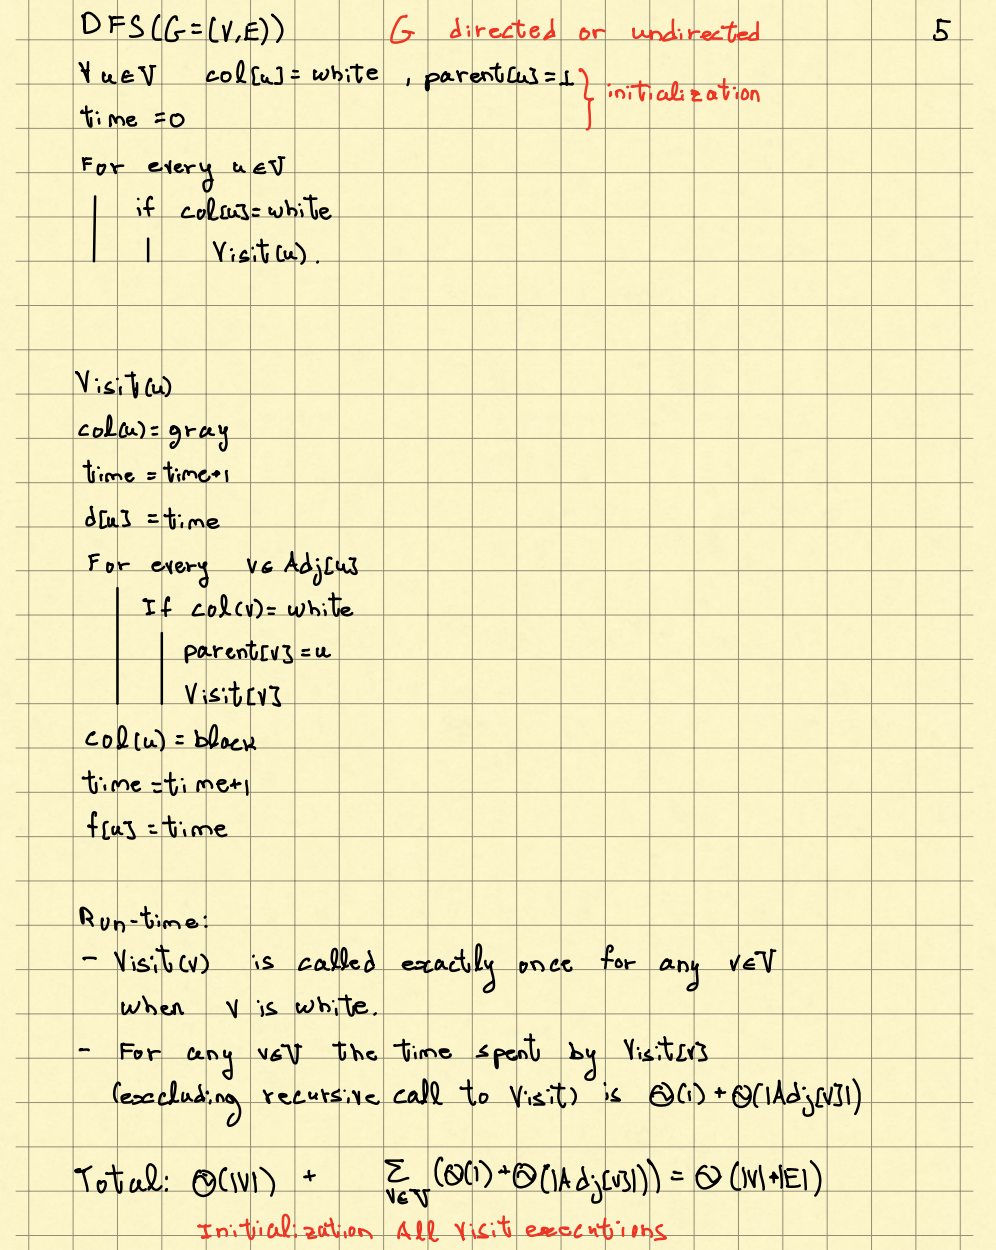 DFS(G=(V,E)) G directed or undirected 5
∀u∈V col[u]=white , parent[u]=⊥ } initialization
time =0
For every u∈V
if col[u]=white
Visit(u).
Visit(u)
col(u)=gray
time = time+1
d[u] =time
For every v∈Adj[u]
If col(v)=white
parent[v]=u
Visit[v]
col(u)=black
time=time+1
f[u]=time
Run-time:
- Visit(v) is called exactly once for any v∈V
when v is white.
- For any v∈V the time spent by Visit[v]
(excluding recursive call to Visit) is Θ(1)+Θ(|Adj[v]|)
Total: Θ(|V|) + Σ_{v∈V} (Θ(1)+Θ(|Adj[v]|)) = Θ(|V|+|E|)
Initialization All Visit executions